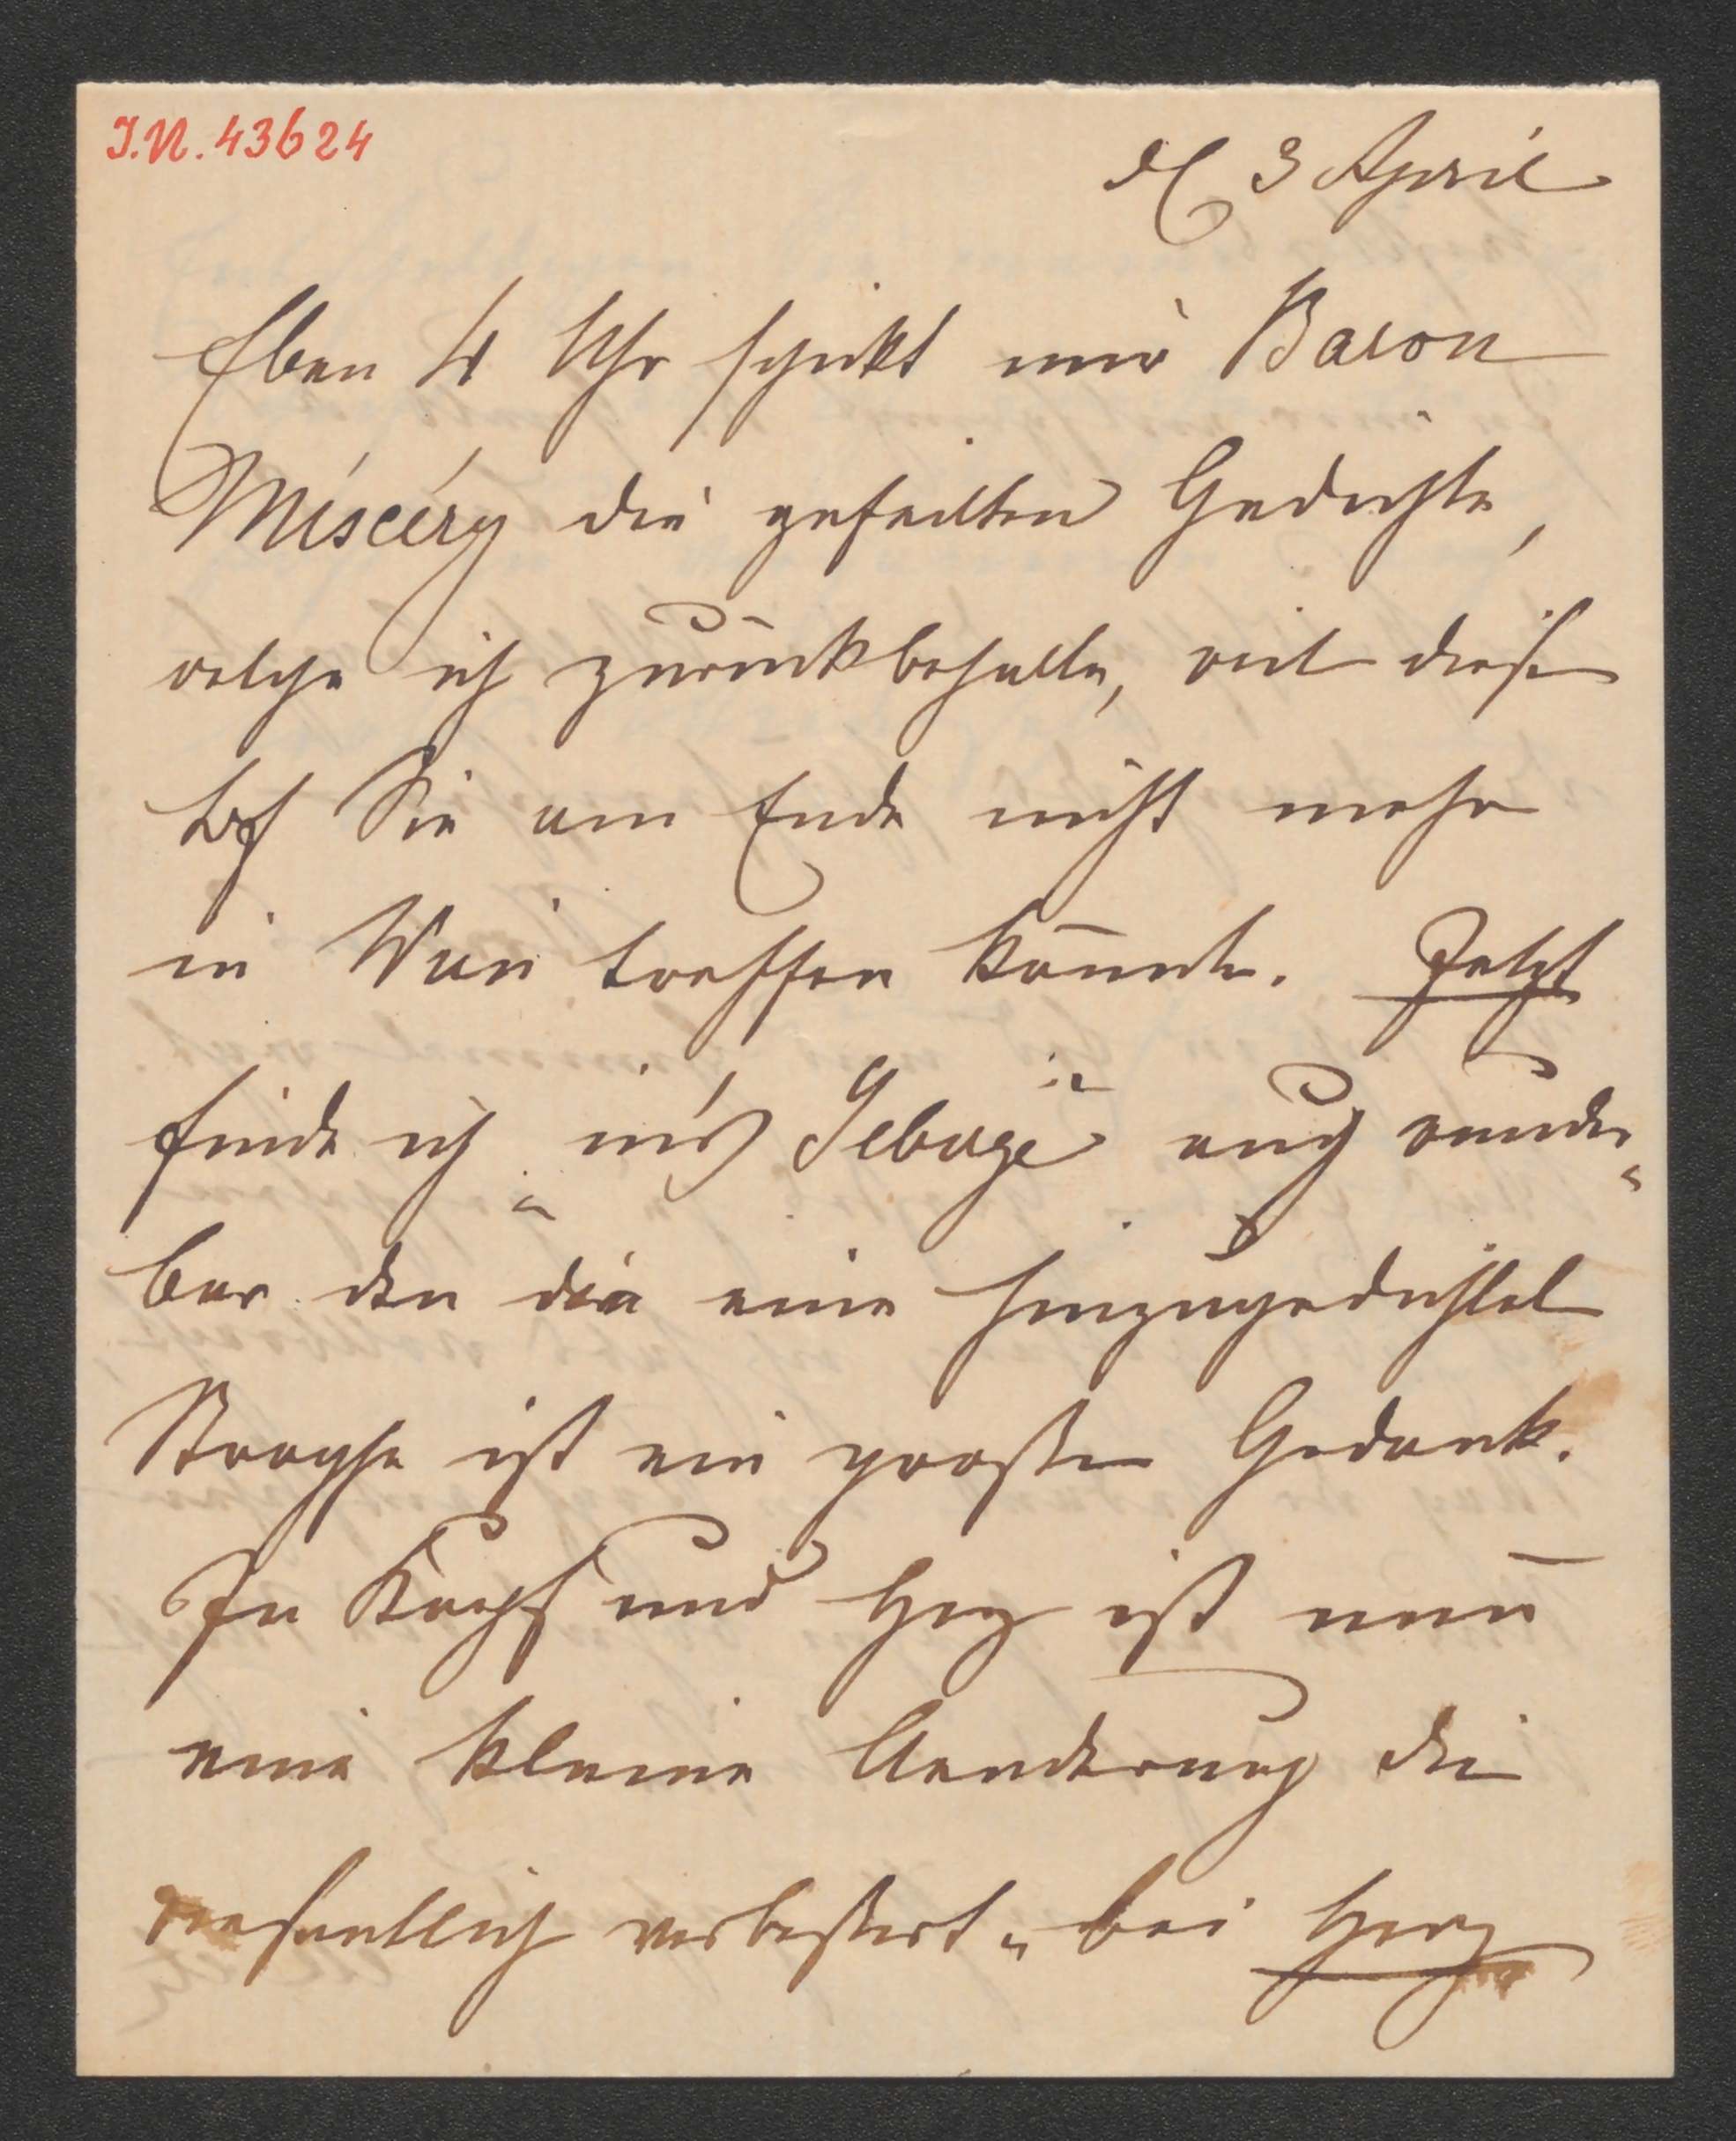 I.N. 43624
d 3 April
Eben 4 Uhr schickt mir Baron
Miscéry die gefeilten Gedichte,
welche ich zurückbehalte, weil diese
Sie am Ende nicht mehr
in Wien treffen könnte. Jetzt
finde ich „in's Gebirge“ auch wunder-
bar den die eine hinzugedichtet
Strophe ist ein großer Gedanke.
In Kopf und Herz ist nun
eine kleine Aenderung die
wesentlich verbessert. bei Herz